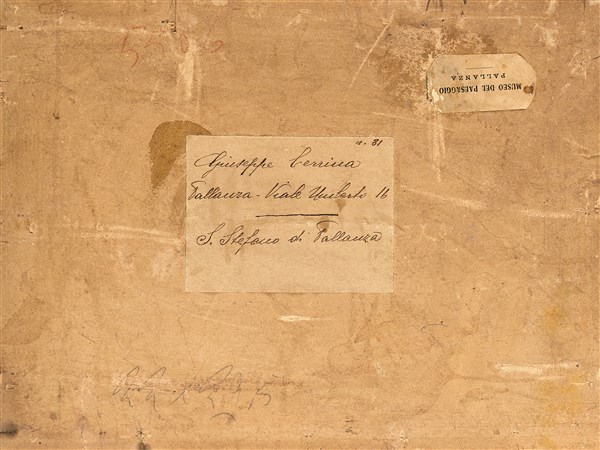 MUSEO DEL PAESAGGIO
PALLANZA
n. 31
Giuseppe Cerrina
Pallanza - Viale Umberto 16
S. Stefano di Pallanza